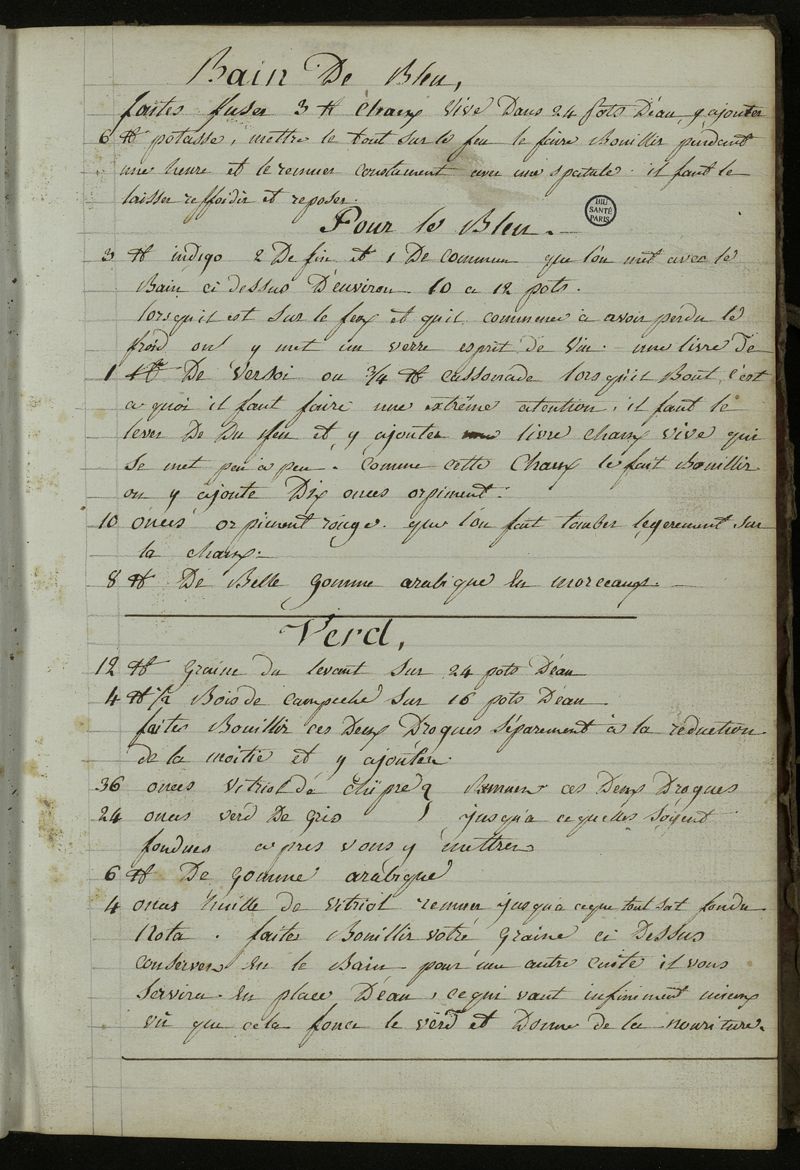 Bain De Bleu,
faites fuser 3 ℔ Chaux Vive Dans 24 pots D'éau, y ajouter
6 ℔ potasse, mettre le tout sur le feu le faire Bouillir pendant
une heure et le remuer constament avec une spatule. il faut le
laisser reffoidir et reposer.
BIU
SANTÉ
PARIS
Pour le Bleu.
3 ℔ indigo 2 De fin et 1 De commun que l'on met avec le
Bain ci dessus D'environ 10 a 12 pots.
lorsquil est sur le feu et qu'il commence a avoir perdu le
froid on y met un verre esprit de Vin. une livre de
1 ℔ De Versoi ou 3/4 ℔ cassonade lorsqu'il Bout, c'est
a quoi il faut faire une extrême atention, il faut le
lever De Du feu et y ajouter livre chaux vive qui
se met peu a peu. Comme cette Chaux le fait Bouillir
on y ajoute Dix onces orpiment.
10 onces orpiment rouge. que l'on fait tomber legerement sur
la chaux.
8 ℔ De Belle gomme arabique En morceaux.
Verd,
12 ℔ Graine du levant sur 24 pots D'éau
4 ℔ 1/2 Bois de campeche sur 16 pots D'éau
faites Bouillir ces Deux Drogues séparement à la réduction
de la moitié et y ajouter
36 onces Vitriol dé chipre } Remuer ces Deux Drogues
24 onces verd De Gris } jusqu'a ce qu'elles soyent
fondues apres vous y mettrer
6 ℔ De gomme arabique
4 onces huille de Vitriol remuer jusqu'a ceque tout sat fondu
Nota. faites Bouillir votre Graine ci Dessus
conserver En le Bain pour une autre cuite il vous
Servira En place D'éau, ce qui vaut infiniment mieux
vû que cela fonce le vérd et Donne de la nouriture.